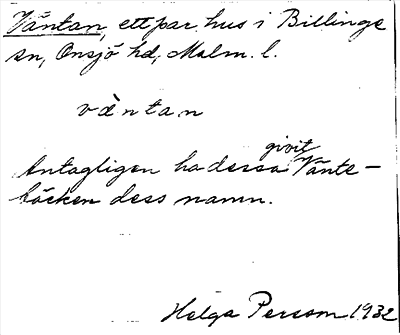 Väntan, ett par hus i Billinge
sn, Onsjö hd, Malm. l.
vàntan
Antagligen ha dessa givit Vänte-
bäcken dess namn.
Helga Persson 1932